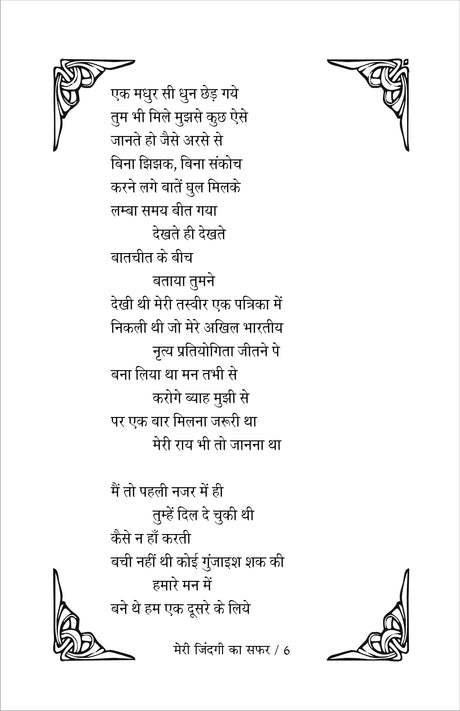 एक मधुर सी धुन छेड़ गये
तुम भी मिले मुझसे कुछ ऐसे
जानते हो जैसे अरसे से
बिना झिझक, बिना संकोच
करने लगे बातें घुल मिलके
लम्बा समय बीत गया
देखते ही देखते
बातचीत के बीच
बताया तुमने
देखी थी मेरी तस्वीर एक पत्रिका में
निकली थी जो मेरे अखिल भारतीय
नृत्य प्रतियोगिता जीतने पे
बना लिया था मन तभी से
करोगे ब्याह मुझी से
पर एक बार मिलना जरूरी था
मेरी राय भी तो जानना था
मैं तो पहली नजर में ही
तुम्हें दिल दे चुकी थी
कैसे न हाँ करती
बची नहीं थी कोई गुंजाइश शक की
हमारे मन में
बने थे हम एक दूसरे के लिये
मेरी जिंदगी का सफर / 6